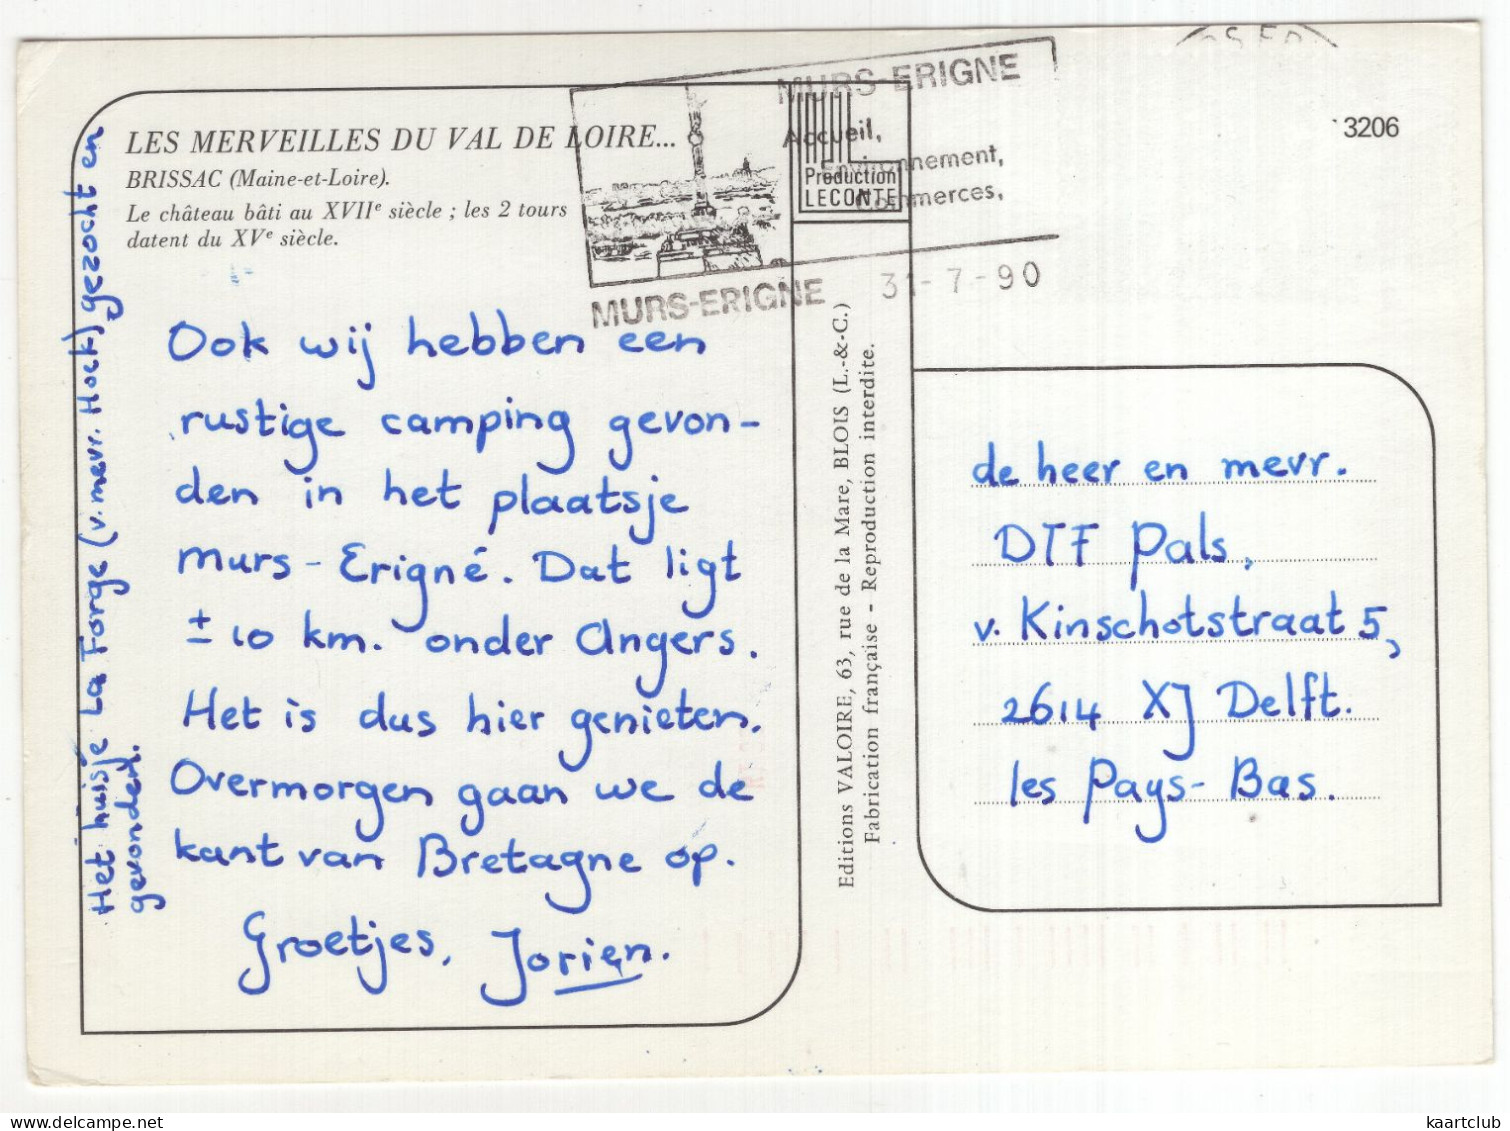 LES MERVEILLES DU VAL DE LOIRE...
BRISSAC (Maine-et-Loire).
Le château bâti au XVIIe siècle ; les 2 tours
datent du XVe siècle.
MURS-ERIGNE
Accueil,
Environnement,
Commerces,
MURS-ERIGNE
31-7-90
Production
LECONTE
3206
Ook wij hebben een
rustige camping gevon-
den in het plaatsje
Murs-Erigné. Dat ligt
± 10 km. onder Angers.
Het is dus hier genieten.
Overmorgen gaan we de
kant van Bretagne op.
Groetjes, Jorien.
Het huisje La Forge (v. mevr. Hoek) gezocht en
gevonden.
Editions VALOIRE, 63, rue de la Mare, BLOIS (L.-&-C.)
Fabrication française - Reproduction interdite.
de heer en mevr.
DTF Pals,
v. Kinschotstraat 5,
2614 XJ Delft.
les Pays-Bas.
kaartclub